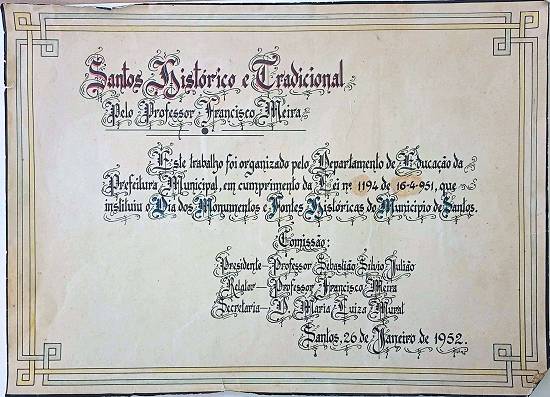 Santos Histórico e Tradicional
Pelo Professor Francisco Meira
Este trabalho foi organizado pelo Departamento de Educação da
Prefeitura Municipal, em cumprimento da Lei nº 1194 de 16-4-951, que
instituiu o Dia dos Monumentos e Fontes Históricas do Município de Santos.
Comissão:
Presidente - Professor Sebastião Silvio Julião
Relator - Professor Francisco Meira
Secretaria - D. Maria Luiza Mural
Santos, 26 de Janeiro de 1952.